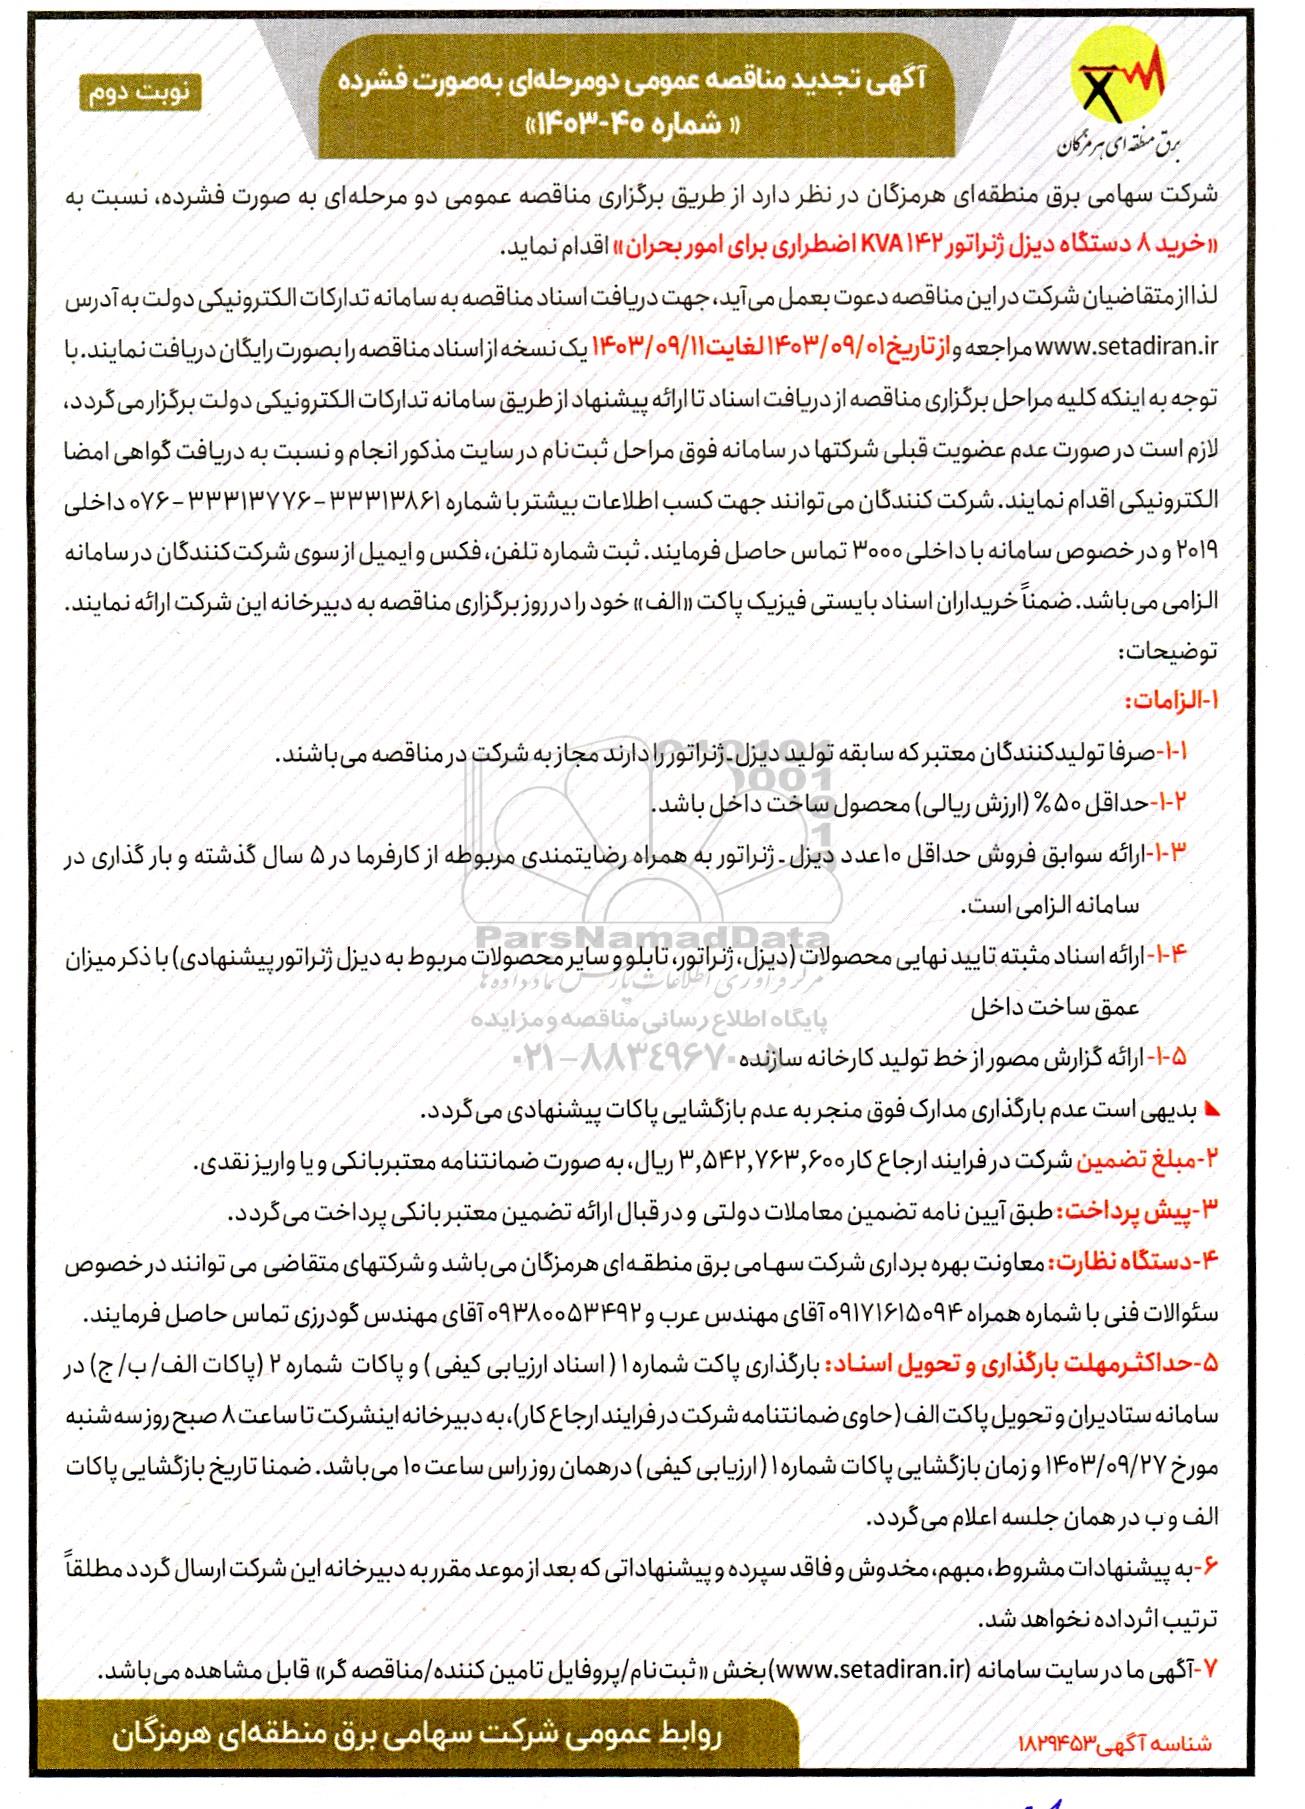 برق منطقه ای هرمزگان
آگهی تجدید مناقصه عمومی دومرحله‌ای به‌صورت فشرده
« شماره ۴۰-۱۴۰۳»
نوبت دوم
شرکت سهامی برق منطقه‌ای هرمزگان در نظر دارد از طریق برگزاری مناقصه عمومی دو مرحله‌ای به صورت فشرده، نسبت به
«خرید ۸ دستگاه دیزل ژنراتور ۱۴۲ KVA اضطراری برای امور بحران» اقدام نماید.
لذا از متقاضیان شرکت در این مناقصه دعوت بعمل می‌آید، جهت دریافت اسناد مناقصه به سامانه تدارکات الکترونیکی دولت به آدرس
www.setadiran.ir مراجعه و از تاریخ ۱۴۰۳/۰۹/۰۱ لغایت ۱۴۰۳/۰۹/۱۱ یک نسخه از اسناد مناقصه را بصورت رایگان دریافت نمایند. با
توجه به اینکه کلیه مراحل برگزاری مناقصه از دریافت اسناد تا ارائه پیشنهاد از طریق سامانه تدارکات الکترونیکی دولت برگزار می‌گردد،
لازم است در صورت عدم عضویت قبلی شرکتها در سامانه فوق مراحل ثبت‌نام در سایت مذکور انجام و نسبت به دریافت گواهی امضا
الکترونیکی اقدام نمایند. شرکت کنندگان می‌توانند جهت کسب اطلاعات بیشتر با شماره ۳۳۳۱۳۸۶۱ - ۳۳۳۱۳۷۷۶ - ۰۷۶ داخلی
۲۰۱۹ و در خصوص سامانه با داخلی ۳۰۰۰ تماس حاصل فرمایند. ثبت شماره تلفن، فکس و ایمیل از سوی شرکت‌کنندگان در سامانه
الزامی می‌باشد. ضمناً خریداران اسناد بایستی فیزیک پاکت «الف» خود را در روز برگزاری مناقصه به دبیرخانه این شرکت ارائه نمایند.
توضیحات:
۱-الزامات:
۱-۱-صرفا تولیدکنندگان معتبر که سابقه تولید دیزل-ژنراتور را دارند مجاز به شرکت در مناقصه می‌باشند.
۱-۲-حداقل ۵۰% (ارزش ریالی) محصول ساخت داخل باشد.
۱-۳-ارائه سوابق فروش حداقل ۱۰عدد دیزل - ژنراتور به همراه رضایتمندی مربوطه از کارفرما در ۵ سال گذشته و بار گذاری در
سامانه الزامی است.
۱-۴-ارائه اسناد مثبته تایید نهایی محصولات (دیزل، ژنراتور، تابلو و سایر محصولات مربوط به دیزل ژنراتور پیشنهادی) با ذکر میزان
عمق ساخت داخل
۱-۵-ارائه گزارش مصور از خط تولید کارخانه سازنده
بدیهی است عدم بارگذاری مدارک فوق منجر به عدم بازگشایی پاکات پیشنهادی می‌گردد.
۲-مبلغ تضمین شرکت در فرایند ارجاع کار ۳,۵۴۲,۷۶۳,۶۰۰ ریال، به صورت ضمانتنامه معتبر بانکی و یا واریز نقدی.
۳-پیش پرداخت: طبق آیین نامه تضمین معاملات دولتی و در قبال ارائه تضمین معتبر بانکی پرداخت می‌گردد.
۴-دستگاه نظارت: معاونت بهره برداری شرکت سهامی برق منطقه‌ای هرمزگان می‌باشد و شرکتهای متقاضی می توانند در خصوص
سئوالات فنی با شماره همراه ۰۹۱۷۱۶۱۵۰۹۴ آقای مهندس عرب و ۰۹۳۸۰۰۵۳۴۹۲ آقای مهندس گودرزی تماس حاصل فرمایند.
۵-حداکثرمهلت بارگذاری و تحویل اسناد: بارگذاری پاکت شماره ۱ ( اسناد ارزیابی کیفی ) و پاکات شماره ۲ (پاکات الف/ ب/ ج) در
سامانه ستادیران و تحویل پاکت الف (حاوی ضمانتنامه شرکت در فرایند ارجاع کار)، به دبیرخانه اینشرکت تا ساعت ۸ صبح روز سه شنبه
مورخ ۱۴۰۳/۰۹/۲۷ و زمان بازگشایی پاکات شماره ۱ (ارزیابی کیفی ) درهمان روز راس ساعت ۱۰ می‌باشد. ضمنا تاریخ بازگشایی پاکات
الف و ب در همان جلسه اعلام می‌گردد.
۶-به پیشنهادات مشروط، مبهم، مخدوش و فاقد سپرده و پیشنهاداتی که بعد از موعد مقرر به دبیرخانه این شرکت ارسال گردد مطلقاً
ترتیب اثرداده نخواهد شد.
۷-آگهی ما در سایت سامانه (www.setadiran.ir) بخش «ثبت‌نام/پروفایل تامین کننده/مناقصه گر» قابل مشاهده می‌باشد.
شناسه آگهی ۱۸۲۹۴۵۳
روابط عمومی شرکت سهامی برق منطقه‌ای هرمزگان
ParsNamadData
مرکز فرآوری اطلاعات پارس نماد داده ها
پایگاه اطلاع رسانی مناقصه و مزایده
۰۲۱-۸۸۳۴۹۶۷۰-۵